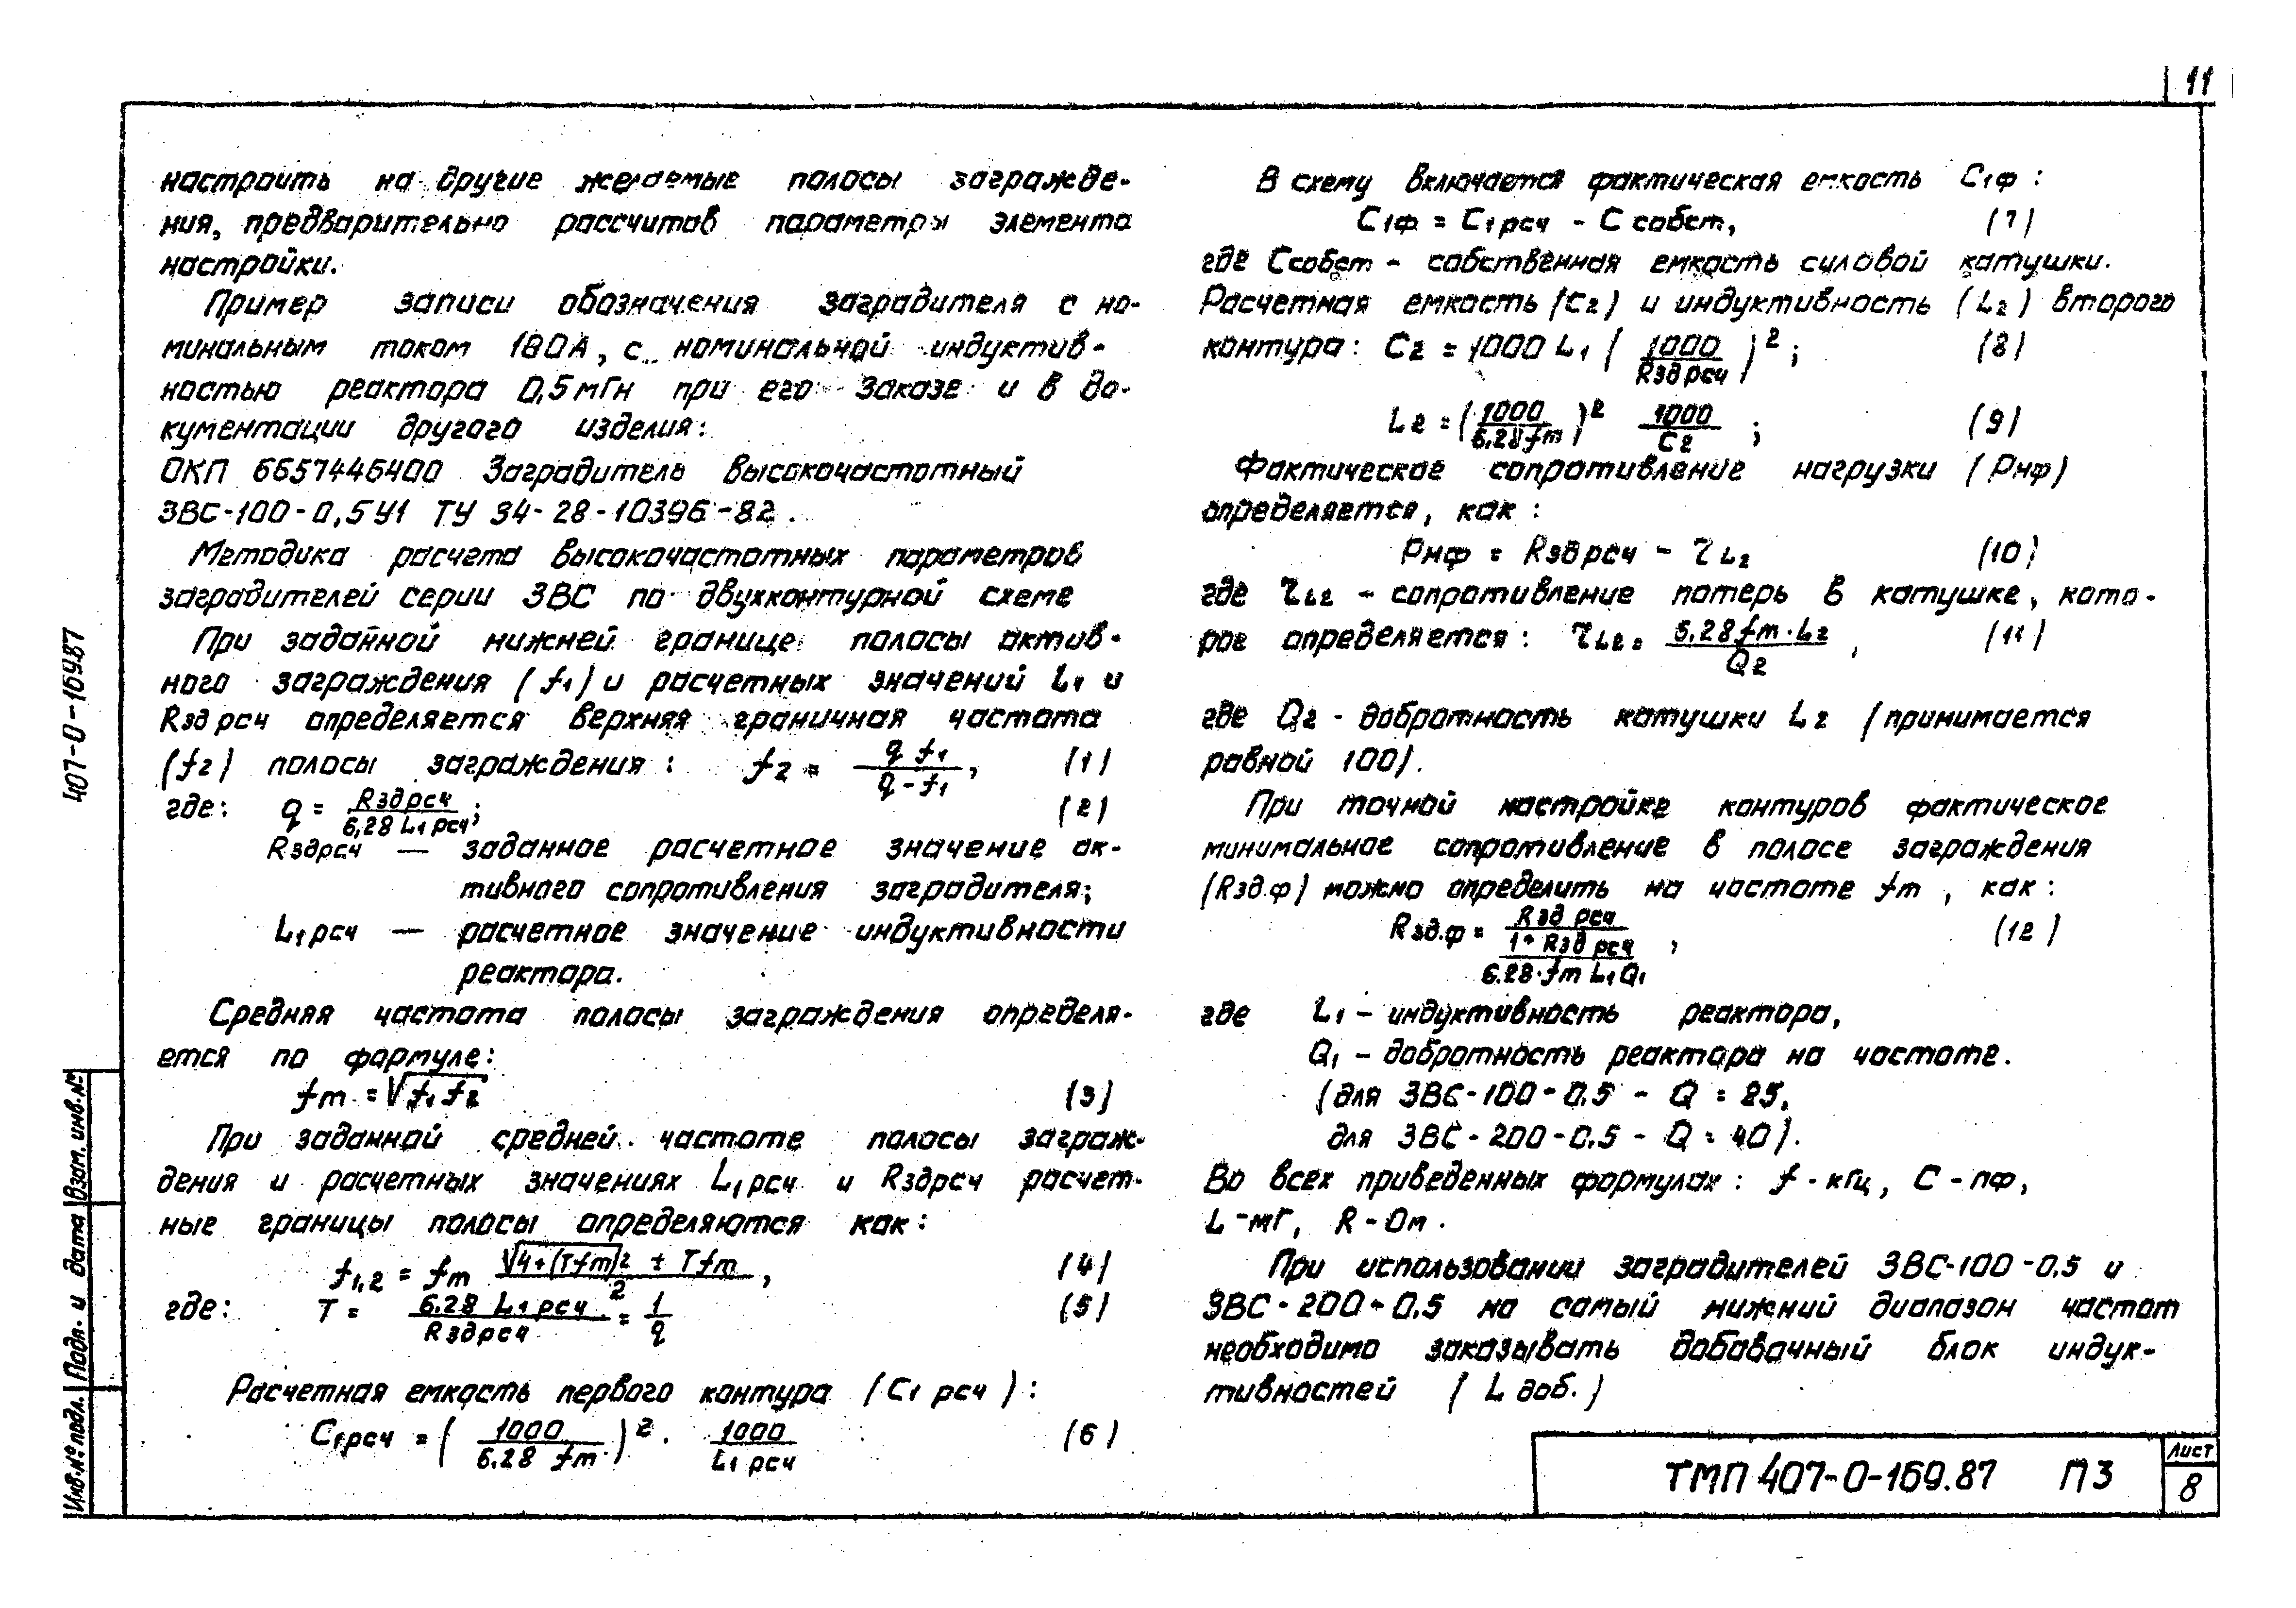 11
настроить на другие желаемые полосы загражде-
ния, предварительно рассчитав параметры элемента
настройки.
Пример записи обозначения заградителя с но-
минальным током 100А, с номинальной индуктив-
ностью реактора 0,5мГн при его заказе и в до-
кументации другого изделия:
ОКП 6657446400 Заградитель высокочастотный
ЗВС-100-0,5У1 ТУ 34-28-10396-82.
Методика расчета высокочастотных параметров
заградителей серии ЗВС по двухконтурной схеме
При заданной нижней границе полосы актив-
ного заграждения (f1) и расчетных значений L1 и
Rзд рсч определяется верхняя граничная частота
(f2) полосы заграждения: f2 = q f1 / (q - f1), (1)
где: q = Rздрсч / 6,28 L1 рсч; (2)
Rздрсч — заданное расчетное значение ак-
тивного сопротивления заградителя;
L1 рсч — расчетное значение индуктивности
реактора.
Средняя частота полосы заграждения определя-
ется по формуле:
fm = √f1 f2 (3)
При заданной средней частоте полосы заграж-
дения и расчетных значениях L1 рсч и Rздрсч расчет-
ные границы полосы определяются как:
f1,2 = fm (√4+(Tfm)2 ± Tfm) / 2, (4)
где: T = 6.28 L1 рсч / Rздрсч = 1 / q (5)
Расчетная емкость первого контура (C1 рсч):
C1рсч = (1000 / 6.28 fm)2 · 1000 / L1 рсч (6)
В схему включается фактическая емкость C1ф:
C1ф = C1 рсч - C собст, (7)
где Cсобст - собственная емкость силовой катушки.
Расчетная емкость (C2) и индуктивность (L2) второго
контура: C2 = 1000 L1 (1000 / Rзд рсч)2; (8)
L2 = (1000 / 6.28 fm)2 1000 / C2; (9)
Фактическое сопротивление нагрузки (Рнф)
определяется, как:
Рнф = Rзд рсч - τL2 (10)
где τL2 - сопротивление потерь в катушке, кото-
рое определяется: τL2 = 6.28 fm · L2 / Q2, (11)
где Q2 - добротность катушки L2 (принимается
равной 100).
При точной настройке контуров фактическое
минимальное сопротивление в полосе заграждения
(Rзд.ф) можно определить на частоте fm, как:
Rзд.ф = Rзд рсч / (1+ Rзд рсч / 6.28·fm L1 Q1), (12)
где L1 - индуктивность реактора,
Q1 - добротность реактора на частоте.
(для ЗВС-100-0.5 - Q = 25,
для ЗВС-200-0.5 - Q = 40).
Во всех приведенных формулах: f - кГц, C - пф,
L - мГ, R - Ом.
При использовании заградителей ЗВС-100-0.5 и
ЗВС-200-0.5 на самый нижний диапазон частот
необходимо заказывать добавочный блок индук-
тивностей (L доб.)
ТМП 407-0-169.87 ПЗ
Лист
8
407-0-169.87
Взам. инв. №
Подп. и дата
Инв. № подл.